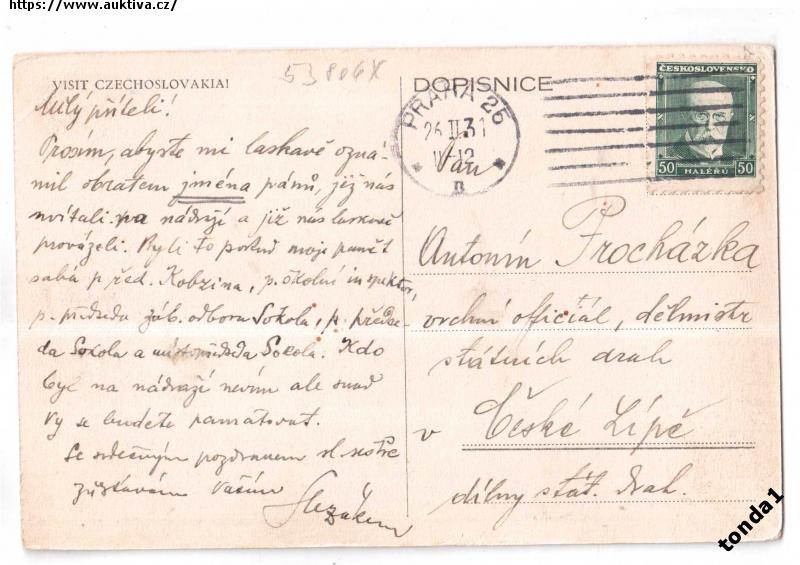 https://www.auktiva.cz/
VISIT CZECHOSLOVAKIA!
53806X
Milý příteli!
Prosím, abyste mi laskavě ozná-
mil obratem jména pánů, jež nás
uvítali na nádraží a již nás laskavě
provázeli. Byli to pokud moje paměť
sahá před. Kobzina, p. školní inspektor,
p. předseda záb. odboru Sokola, p. předse-
da Sokola a místopředseda Sokola. Kdo
byl na nádraží nevím ale snad
Vy se budete pamatovat.
Se srdečným pozdravem
zůstávám Vaším
Slezákem
DOPISNICE
PRAHA 25
26 II 31
11-12
ČESKOSLOVENSKO
50 HALÉŘŮ 50
Pan
Antonín Procházka
vrchní oficiál, dělmistr
státních drah
v České Lípě
dílny stát. drah.
tonda1